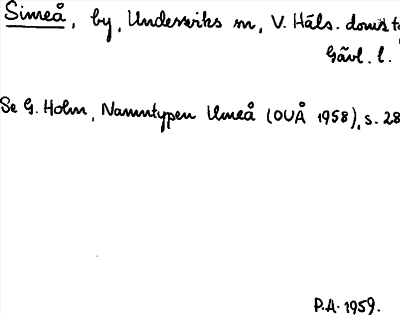 Simeå, by, Underviks sn, V. Häls. doms
Gävl. l.
Se G. Holm, Namntypen Umeå (OUÅ 1958), s. 28
P.A. 1959.